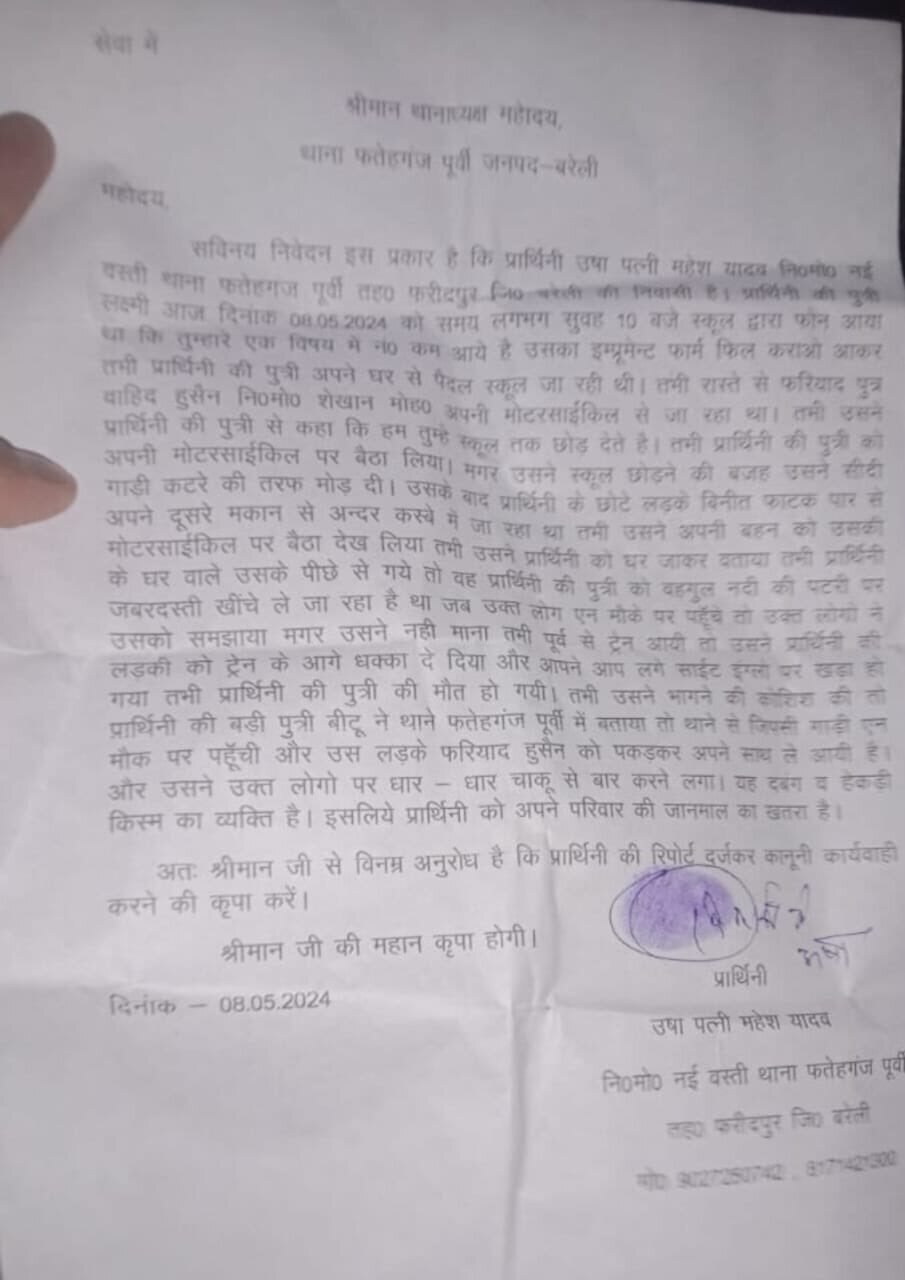 सेवा में
श्रीमान थानाध्यक्ष महोदय,
थाना फतेहगंज पूर्वी जनपद–बरेली
महोदय,
सविनय निवेदन इस प्रकार है कि प्रार्थिनी उषा पत्नी महेश यादव नि0मो0 नई
वस्ती थाना फतेहगंज पूर्वी तह0 फरीदपुर जि0 बरेली की निवासी है। प्रार्थिनी की पुत्री
लक्ष्मी आज दिनांक 08.05.2024 को समय लगभग सुवह 10 बजे स्कूल द्वारा फोन आया
था कि तुम्हारे एक विषय मे नं0 कम आये है उसका इम्प्रूमेन्ट फार्म फिल कराओ आकर
तभी प्रार्थिनी की पुत्री अपने घर से पैदल स्कूल जा रही थी। तभी रास्ते से फरियाद पुत्र
वाहिद हुसैन नि0मो0 शेखान मोह0 अपनी मोटरसाईकिल से जा रहा था। तभी उसने
प्रार्थिनी की पुत्री से कहा कि हम तुम्हे स्कूल तक छोड़ देते है। तभी प्रार्थिनी की पुत्री को
अपनी मोटरसाईकिल पर बैठा लिया। मगर उसने स्कूल छोड़ने की बजह उसने सीदी
गाड़ी कटरे की तरफ मोड़ दी। उसके बाद प्रार्थिनी के छोटे लड़के बिनीत फाटक पार से
अपने दूसरे मकान से अन्दर कस्बे मे जा रहा था तभी उसने अपनी बहन को उसकी
मोटरसाईकिल पर बैठा देख लिया तभी उसने प्रार्थिनी को घर जाकर वताया तभी प्रार्थिनी
के घर वाले उसके पीछे से गये तो वह प्रार्थिनी की पुत्री को वहगुल नदी की पटरी पर
जबरदस्ती खींचे ले जा रहा है था जब उक्त लोग एन मौके पर पहुँचे तो उक्त लोगो ने
उसको समझाया मगर उसने नही माना तभी पूर्व से ट्रेन आयी तो उसने प्रार्थिनी की
लड़की को ट्रेन के आगे धक्का दे दिया और आपने आप लगे साईट इंग्ला पर खडा हो
गया तभी प्रार्थिनी की पुत्री की मौत हो गयी। तभी उसने भागने की कोशिश की तो
प्रार्थिनी की बड़ी पुत्री बीटू ने थाने फतेहगंज पूर्वी में बताया तो थाने से जिपसी गाड़ी एन
मौक पर पहुँची और उस लड़के फरियाद हुसैन को पकड़कर अपने साथ ले आयी है।
और उसने उक्त लोगो पर धार – धार चाकू से बार करने लगा। यह दबंग व हेकड़ी
किस्म का व्यक्ति है। इसलिये प्रार्थिनी को अपने परिवार की जानमाल का खतरा है।
अतः श्रीमान जी से विनम्र अनुरोध है कि प्रार्थिनी की रिपोर्ट दर्जकर कानूनी कार्यवाही
करने की कृपा करें।
श्रीमान जी की महान कृपा होगी।
उषा
प्रार्थिनी
दिनांक – 08.05.2024
उषा पत्नी महेश यादव
नि0मो0 नई वस्ती थाना फतेहगंज पूर्वी
तह0 फरीदपुर जि0 बरेली
मो0